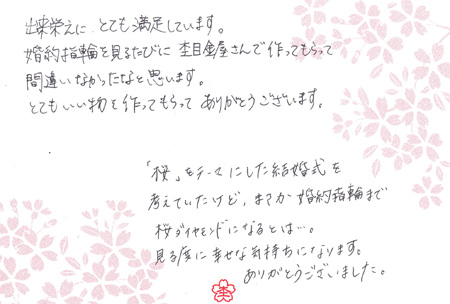 出来栄えに とても満足しています。
婚約指輪を見るたびに 杢目金屋さんで作ってもらって
間違いなかったなと思います。
とてもいい物を作ってもらって ありがとうございます。
「桜」をテーマにした結婚式を
考えていたけど、まさか婚約指輪まで
桜ダイヤモンドになるとは…。
見る度に幸せな気持ちになります。
ありがとうございました。